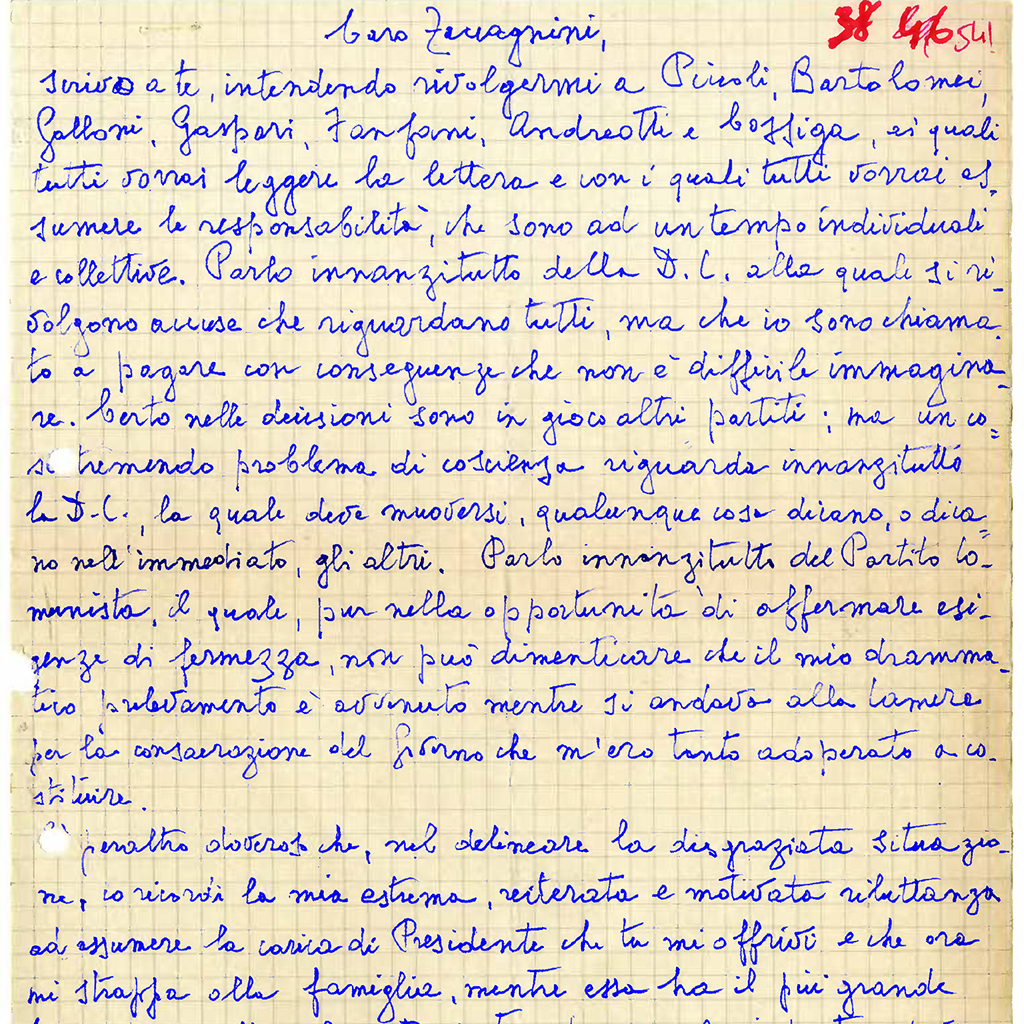 Caro Zaccagnini,
38
541
scrivo a te, intendendo rivolgermi a Piccoli, Bartolomei,
Galloni, Gaspari, Fanfani, Andreotti e Cossiga, ai quali
tutti vorrai leggere la lettera e con i quali tutti vorrai as=
sumere le responsabilità, che sono ad un tempo individuali
e collettive. Parlo innanzitutto della D.C. alla quale si ri=
volgono accuse che riguardano tutti, ma che io sono chiama=
to a pagare con conseguenze che non è difficile immagina=
re. Certo nelle decisioni sono in gioco altri partiti; ma un co=
sì tremendo problema di coscienza riguarda innanzitutto
la D.C., la quale deve muoversi, qualunque cosa dicano, o dica=
no nell'immediato, gli altri. Parlo innanzitutto del Partito Co=
munista, il quale, pur nella opportunità di affermare esi=
genze di fermezza, non può dimenticare che il mio dramma=
tico prelevamento è avvenuto mentre si andava alla Camera
per la consacrazione del Governo che m'ero tanto adoperato a co=
stituire.
È peraltro doveroso che, nel delineare la disgraziata situazio=
ne, io ricordi la mia estrema, reiterata e motivata riluttanza
ad assumere la carica di Presidente che tu mi offrivi e che ora
mi strappa alla famiglia, mentre essa ha il più grande